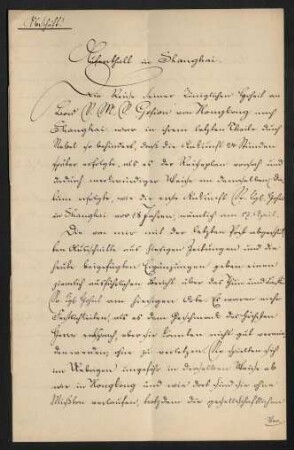 Abschrift!
Aufenthalt in Shanghai.
Die Reise Seiner Königlichen Hoheit an
Bord S. M. S. Gefion von Hongkong nach
Shanghai war in ihrem letzten Theile durch
Nebel so behindert, daß die Ankunft 24 Stunden
später erfolgte, als es der Reiseplan vorsah und
dadurch merkwürdiger Weise an demselben Da-
tum erfolgte, wie die erste Ankunft Sr. Kgl. Hoheit
in Shanghai vor 18 Jahren, nämlich am 17. April.
Die von mir mit der letzten Post abgeschickten
Ausschnitte aus hiesigen Zeitungen und die
heute beigefügten Ergänzungen geben einen
ziemlich ausführlichen Bericht über das Thun und Lassen
Sr. Kgl. Hoheit am hiesigen Orte. Es waren mehr
Festlichkeiten, als es dem Geschmack des Höchsten
Herrn entsprach, aber sie konnten nicht gut vermie-
den werden, ohne zu verletzen. Sie spielten sich
im Uebrigen ungefähr in derselben Weise ab
wie in Hongkong und wie dort sind sie ohne
Mißton verlaufen, trotzdem die gesellschaftlichen